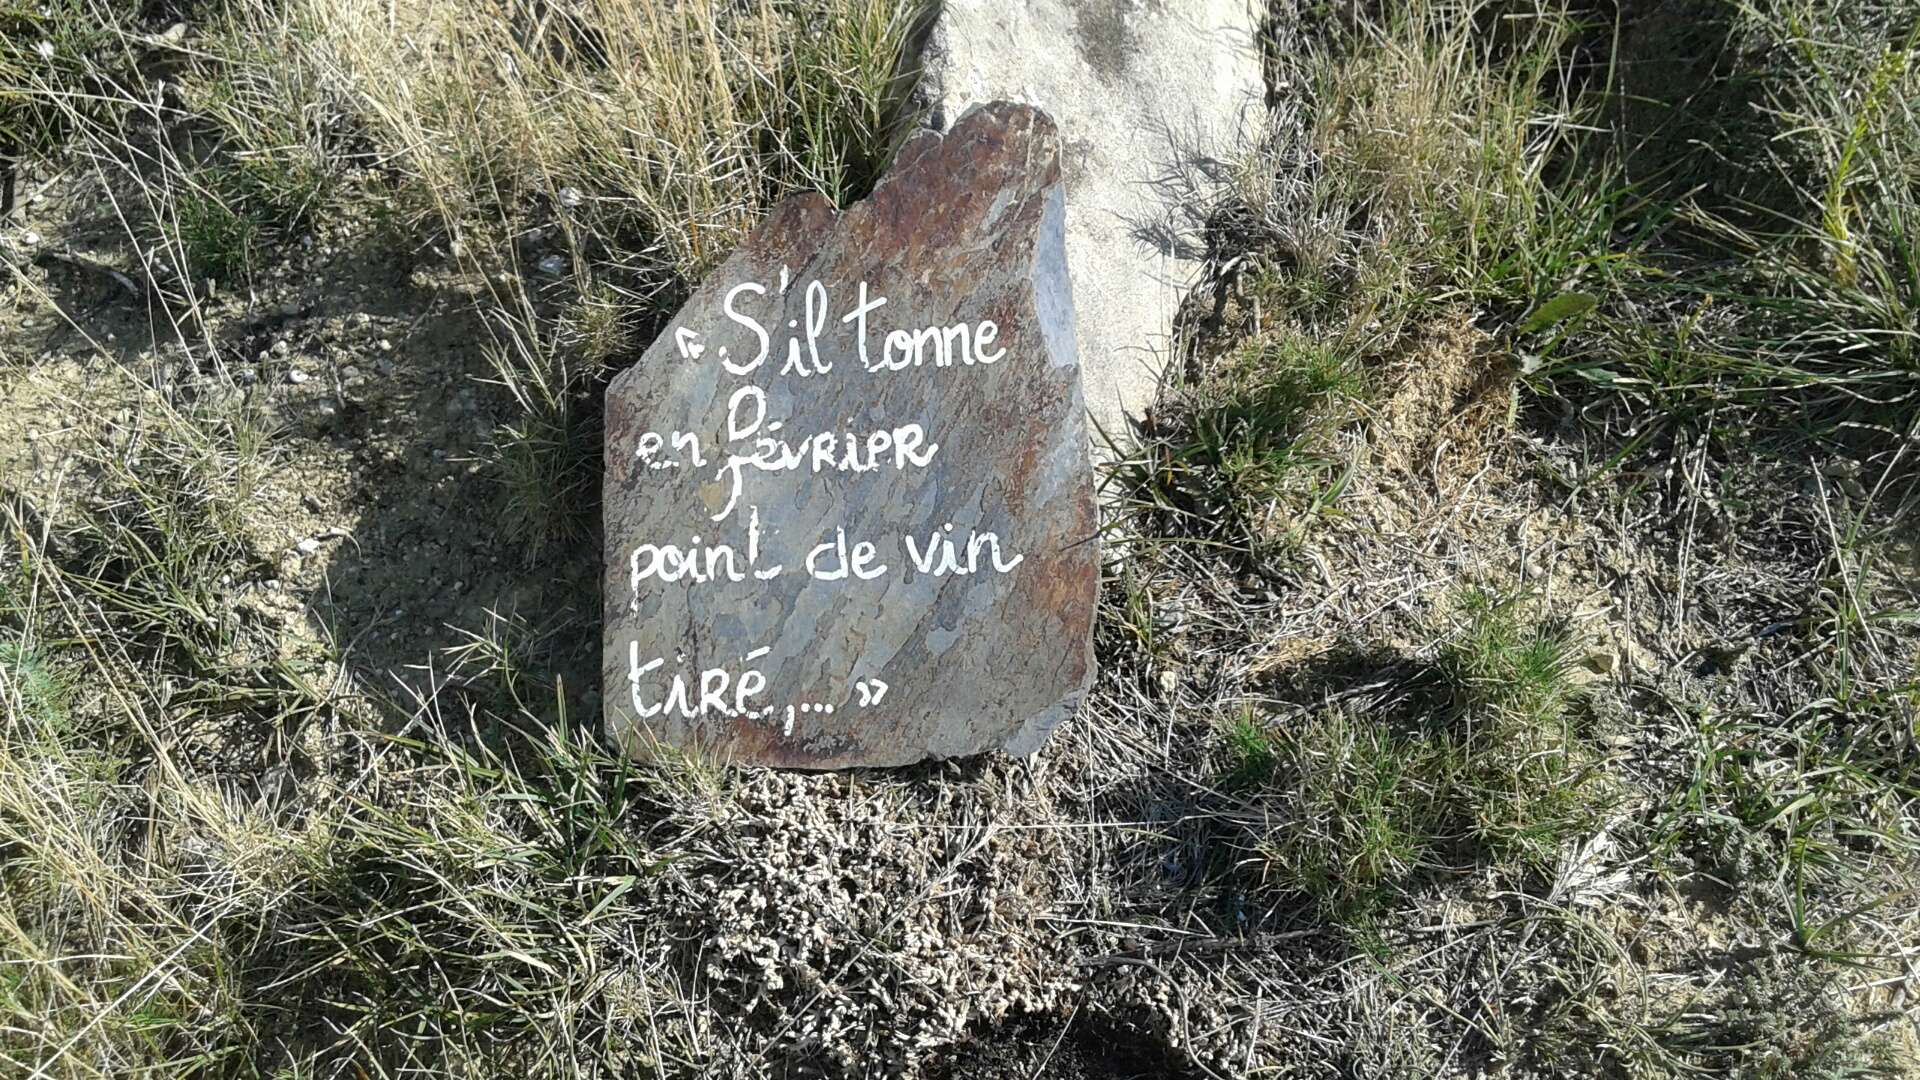 « S'il tonne
en février
point de vin
tiré,... »